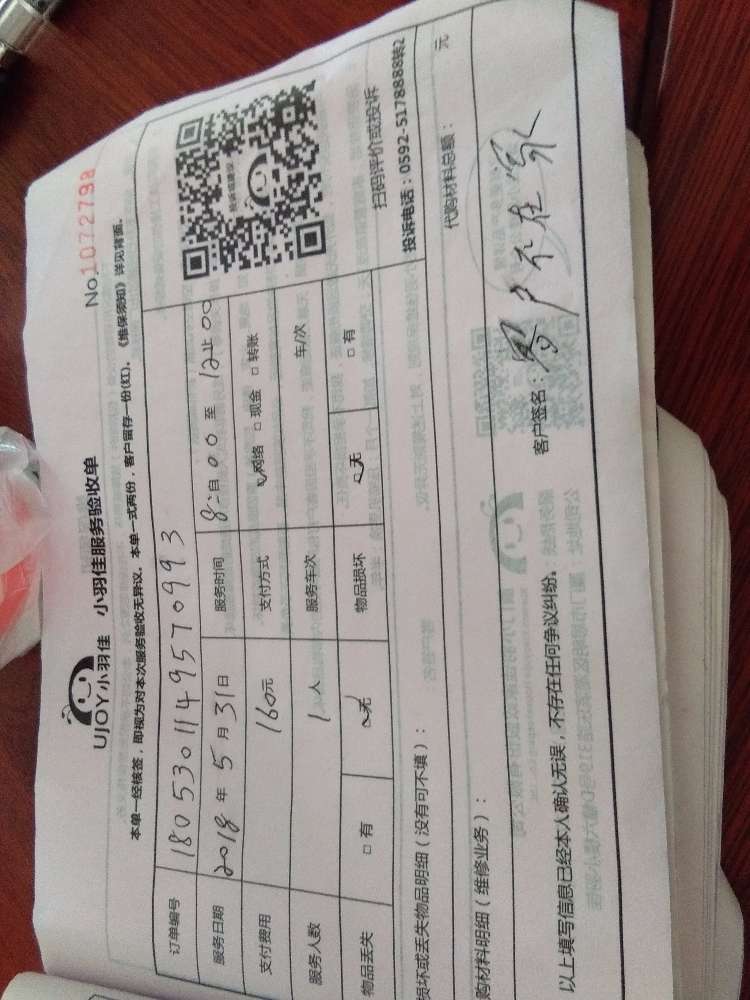 UJOY小羽佳 小羽佳服务验收单
No 1072798
本单一经核签，即视为对本次服务验收无异议。本单一式两份，客户留存一份(红)。《维保须知》详见背面。
订单编号 180530114957 0993
服务日期 2018年5月31日 服务时间 自8:00至12:00
支付费用 160元 支付方式 ☑网络 □现金 □转账
服务人数 1人 服务车次 车/次
物品丢失 □有 ☑无 物品损坏 ☑无 □有
扫码评价或投诉
投诉电话：0592-5178888转2
损坏或丢失物品明细（没有可不填）：
购材料明细（维修业务）： 代购材料总额： 元
以上填写信息已经本人确认无误，不存在任何争议纠纷。 客户签名：客户不在家